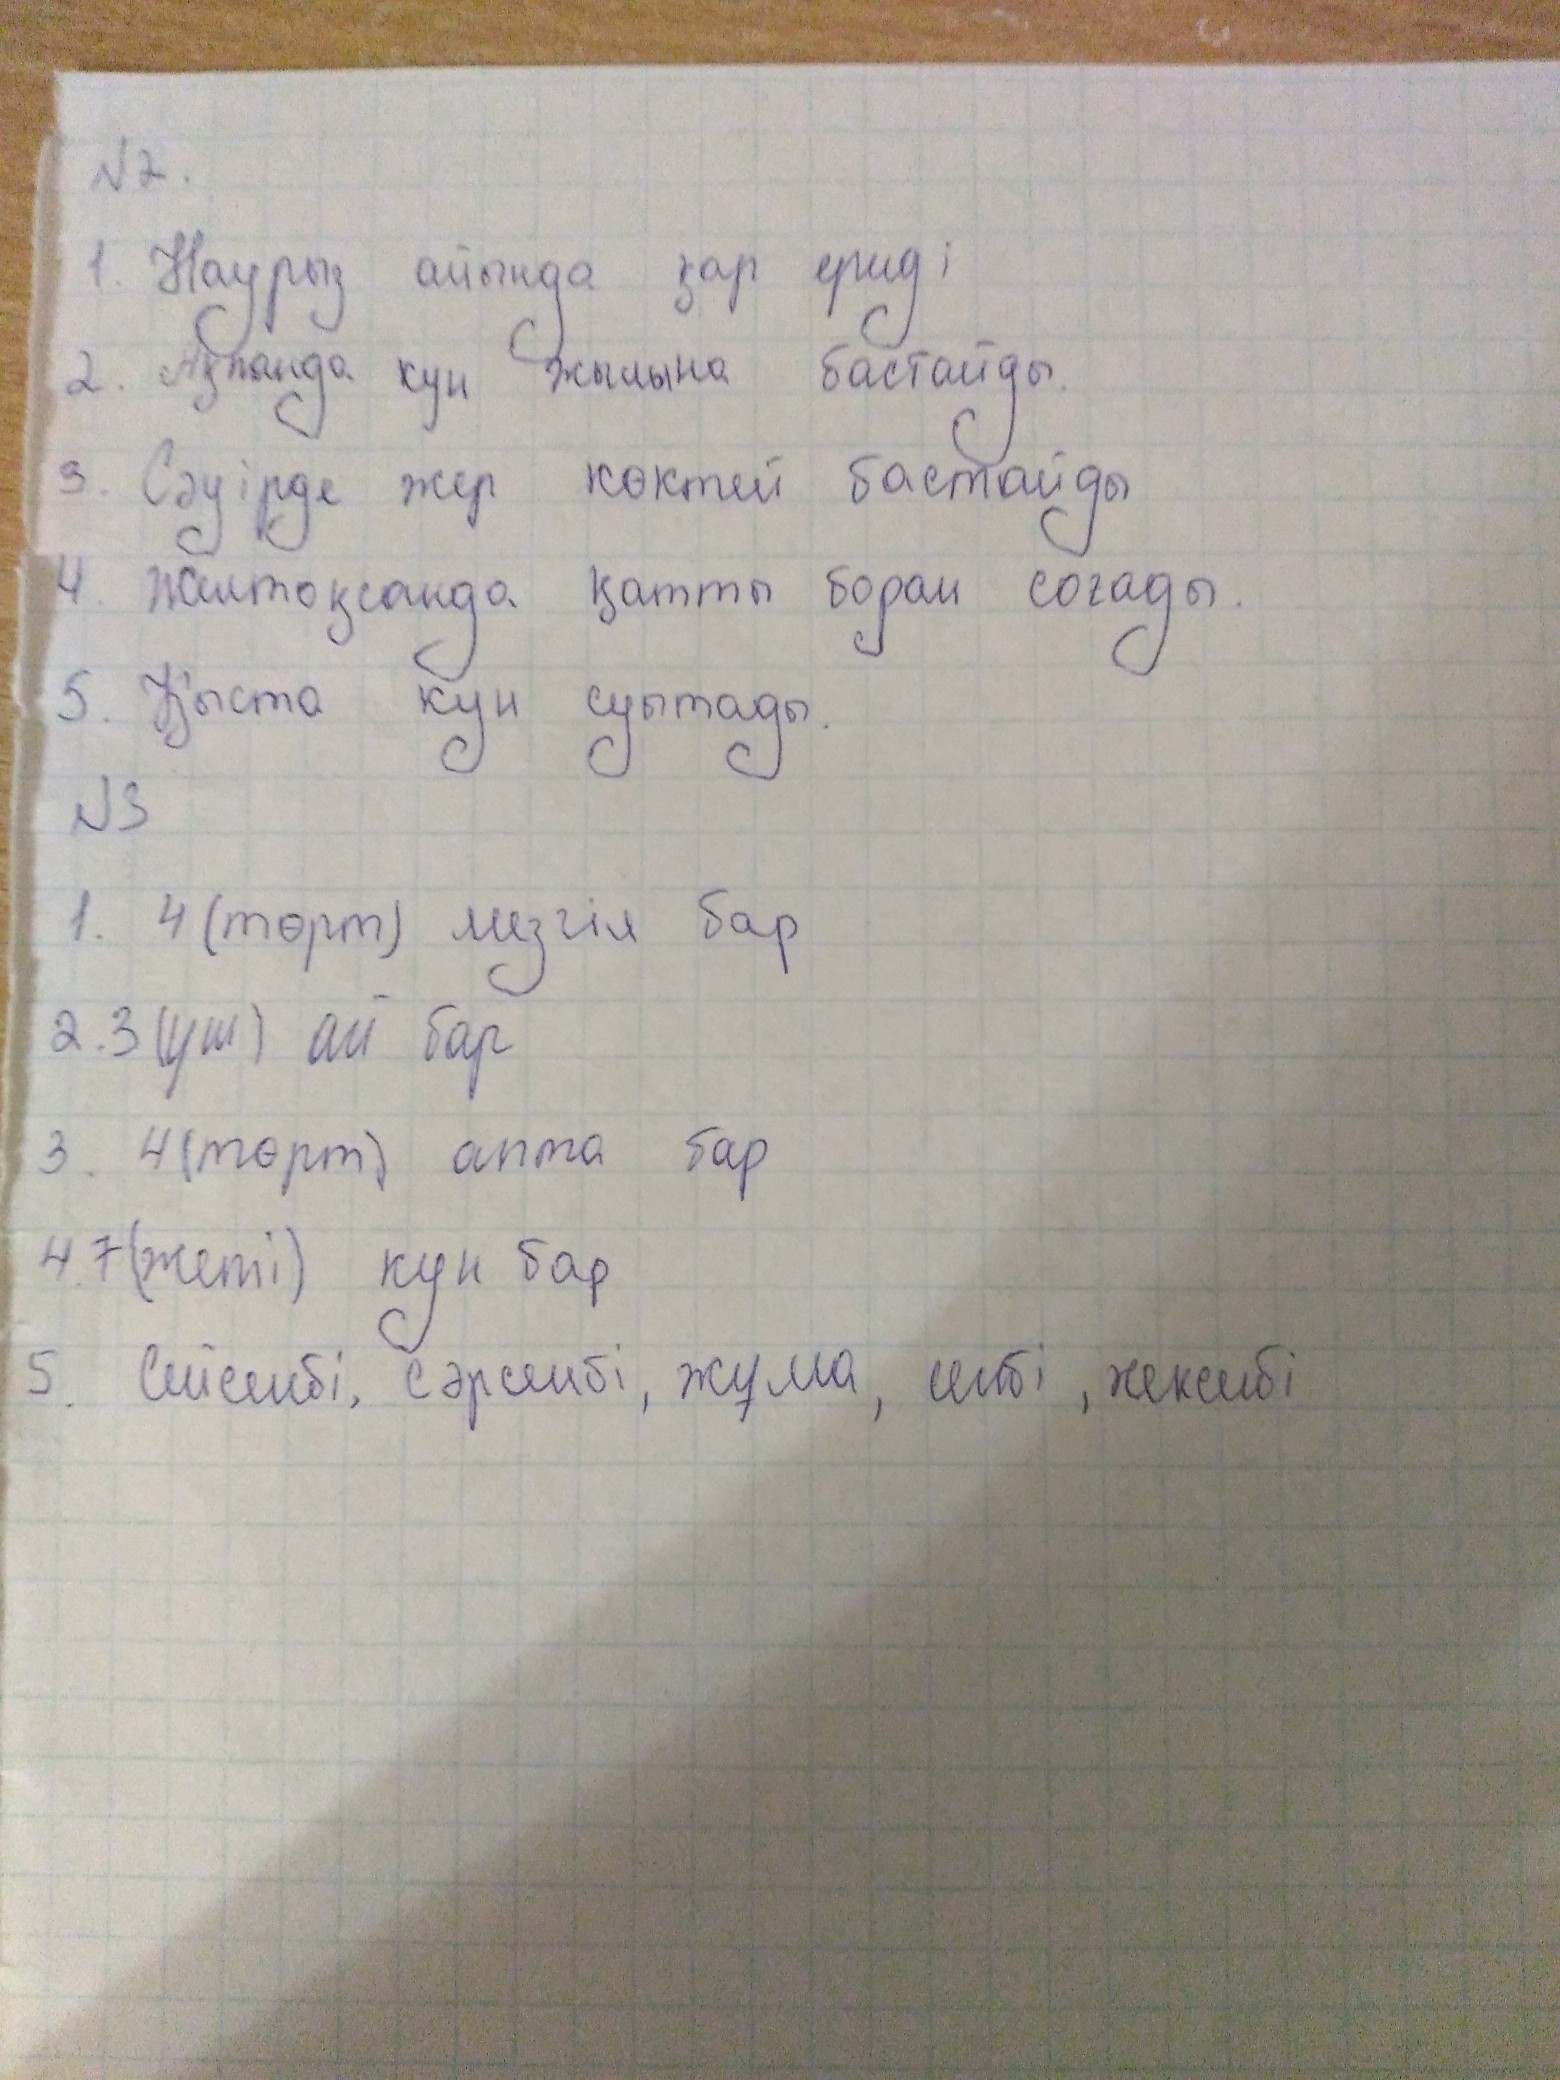 №2.
1. Наурыз айында қар ериді
2. Ақпанда кун жылына бастайды.
3. Сәуірде жер көктей бастайды
4. Желтоқсанда қатты боран согады.
5. Қыста кун суытады.
№3
1. 4 (төрт) мезгіл бар
2. 3 (уш) ай бар
3. 4 (төрт) апта бар
4. 7 (жеті) кун бар
5. Сейсенбі, сәрсенбі, жұма, сенбі, жексенбі